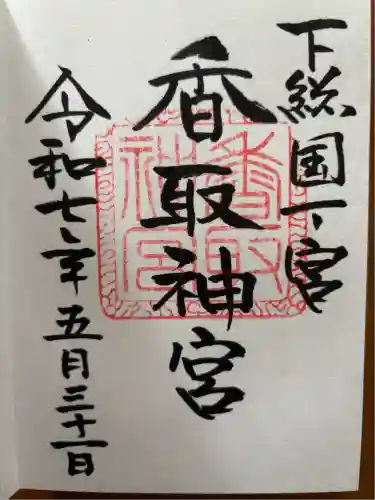 下総国一宮
香取神宮
令和七年五月三十一日